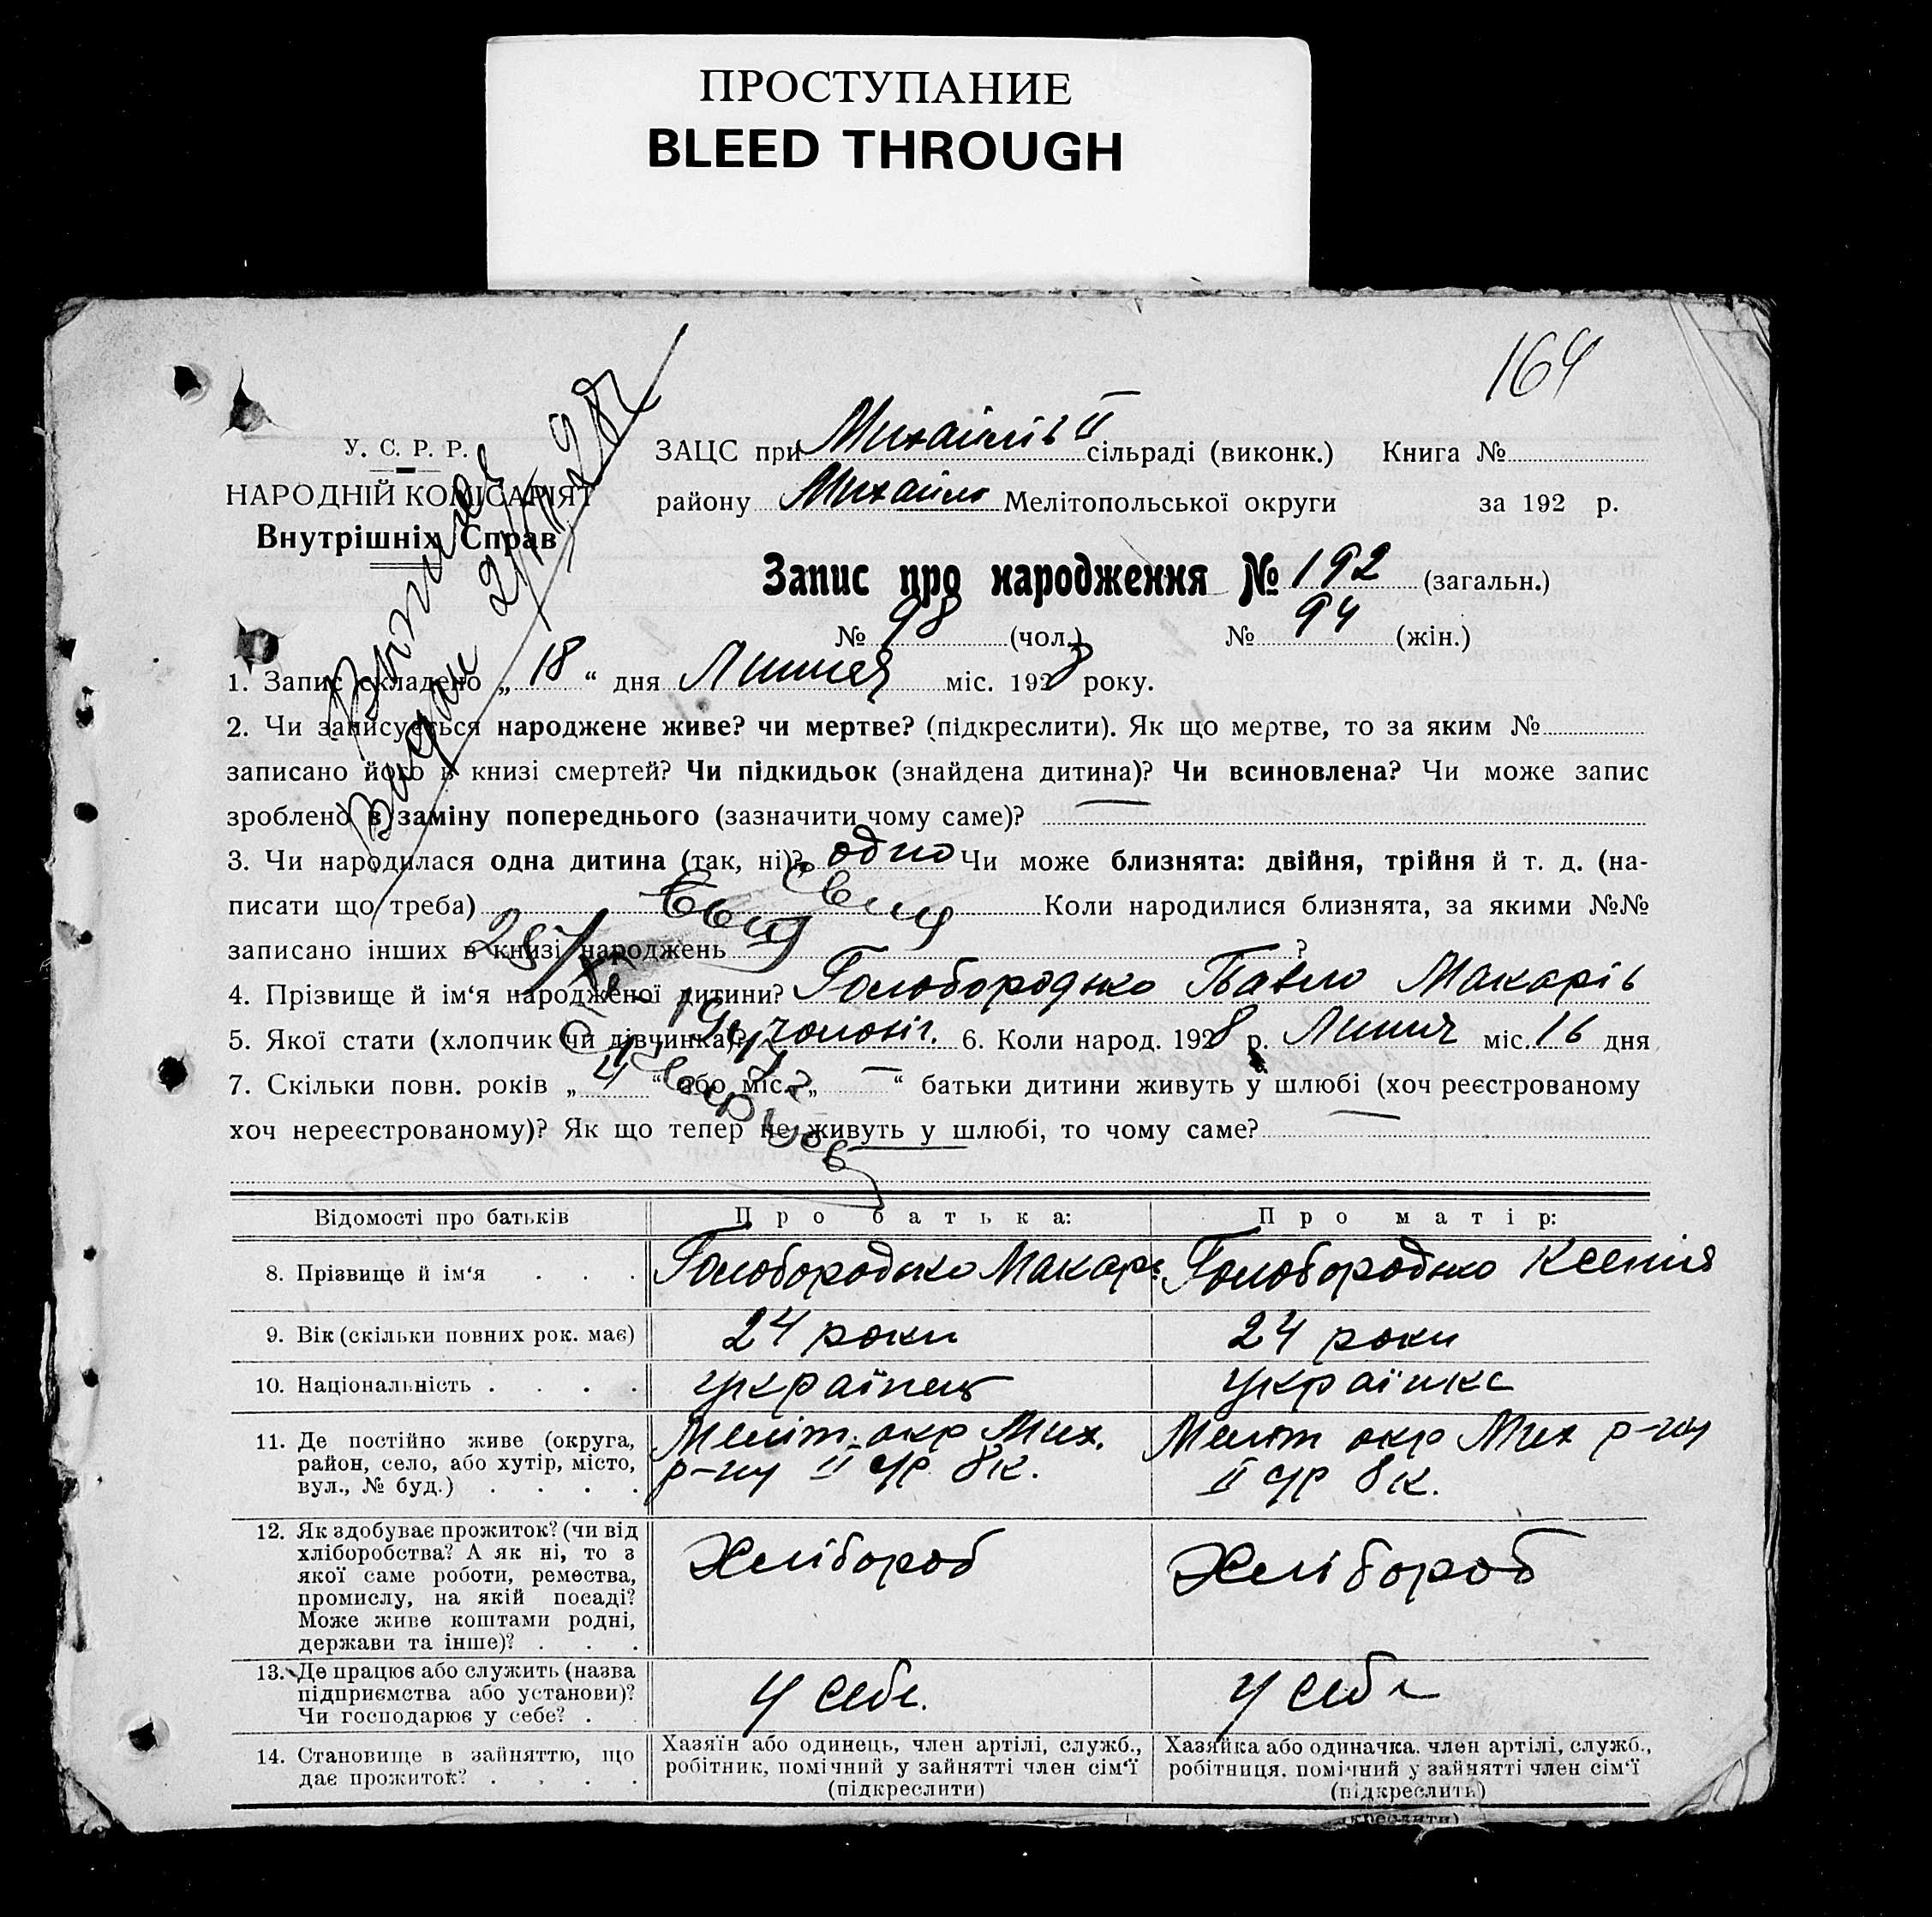 ПРОСТУПАНИЕ
BLEED THROUGH
164
У. С. Р. Р.
НАРОДНІЙ КОМІСАРІЯТ
Внутрішніх Справ
ЗАЦС при Михайлів II сільраді (виконк.) Книга №
району Михайлів Мелітопольської округи за 192 р.
Запис про народження № 192 (загальн.)
№ 98 (чол.) № 94 (жін.)
1. Запис складено „ 18 “ дня Липня міс. 1928 року.
2. Чи записується народжене живе? чи мертве? (підкреслити). Як що мертве, то за яким №
записано його в книзі смертей? Чи підкидьок (знайдена дитина)? Чи всиновлена? Чи може запис
зроблено в заміну попереднього (зазначити чому саме)? —
3. Чи народилася одна дитина (так, ні)? одно Чи може близнята: двійня, трійня й т. д. (на-
писати що треба) Коли народилися близнята, за якими №№
записано інших в книзі народжень ?
4. Прізвище й ім‘я народженої дитини? Голобородько Павло Макарів
5. Якої стати (хлопчик чи дівчинка)? чоловіч. 6. Коли народ. 1928 р. Липня міс. 16 дня
7. Скільки повн. років „ 4 “ або міс. „ — “ батьки дитини живуть у шлюбі (хоч реєстрованому
хоч нереєстрованому)? Як що тепер не живуть у шлюбі, то чому саме? —
Відомості про батьків Про батька: Про матір:
8. Прізвище й ім‘я . . . Голобородько Макарь Голобородько Ксенія
9. Вік (скільки повних рок. має) 24 роки 24 роки
10. Національність . . . . українець українка
11. Де постійно живе (округа, Меліт. окр Мих. Меліт окр Мих р-ну
район, село, або хутір, місто, р-ну II с/р 8 к. II с/р 8 к.
вул., № буд.) . . . .
12. Як здобуває прожиток? (чи від
хліборобства? А як ні, то з Хлібороб Хлібороб
якої саме роботи, ремества,
промислу, на якій посаді?
Може живе коштами родні,
держави та інше)? . . .
13. Де працює або служить (назва
підприємства або установи)? у себе. у себе
Чи господарює у себе? .
14. Становище в зайняттю, що Хазяїн або одинець, член артілі, служб., Хазяйка або одиначка. член артілі, служб.,
дає прожиток? . . . . робітник, помічний у зайнятті член сім‘ї робітниця, помічний у зайнятті член сім‘ї
(підкреслити) (підкреслить)